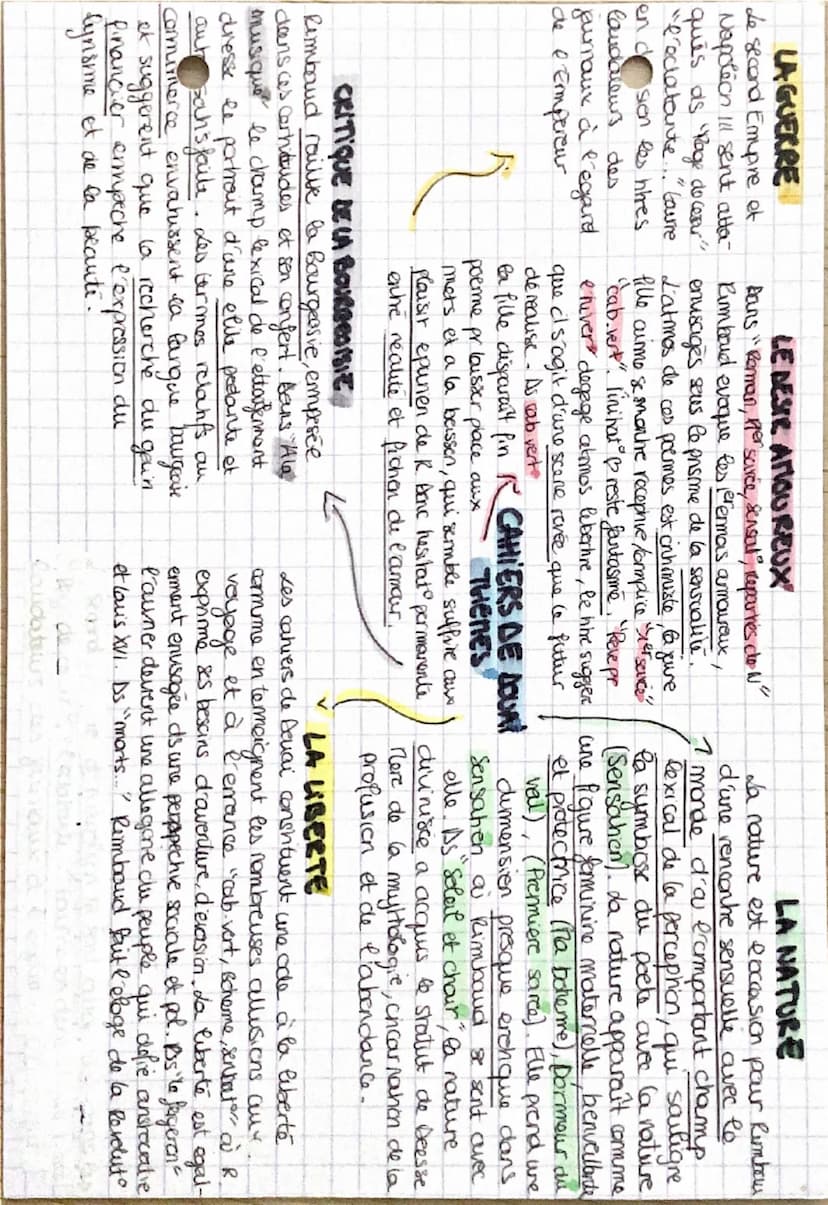 LA GUERRE
Le second Empire et
Napoléon III sont atta-
qués ds "Rage de césar"
"l'éclatante..." œuvre
en son les titres
laudateurs des
journaux à l'égard
de l'Empereur
LE DESIR AMOUREUX
Dans "Roman, 1ère soirée, sensat°, reparties de N"
Rimbaud évoque les émois amoureux,
envisagés sous le prisme de la sensualité.
L'atmos de ces poèmes est intimiste, la figure
fille aimée se montre réceptive/complice "1er soirée"
"cab. vert". l'initiat° reste fantasmé. "Rêve pr
l'hiver" dégage atmos libertine, le titre suggère
que il s'agit d'une scène rêvée que le futur
déréalise. Ds cab vert°
la fille disparaît fin
poème pr laisser place aux
mets et à la boisson, qui semble suffire aux
plaisir épicurien de R. Donc hésitat° permanente
entre réalité et fiction de l'amour.
LA NATURE
La nature est l'occasion pour Rimbau
d'une rencontre sensuelle avec le
monde d'où l'important champ
lexical de la perception, qui souligne
la symbiose du poète avec la nature
(Sensation). La nature apparaît comme
une figure féminine maternelle, bienveillante
et protectrice (Ma bohème), Dormeur du
val), (Première soirée). Elle prend une
dimension presque érotique dans
Sensation où Rimbaud se sent avec
elle. Ds "Soleil et chair", la nature
divinisée a acquis le statut de Déesse
Mère de la mythologie, incarnation de la
profusion et de l'abondance.
CAHIERS DE DOUAI
THEMES
CRITIQUE DE LA BOURGEOISIE
Rimbaud raille la bourgeoisie, empesée
dans ses certitudes et son confort. Dans "A la
musique" le champ lexical de l'étouffement
dresse le portrait d'une élite pédante et
auto satisfaite. Les termes relatifs au
commerce envahissent la langue bourgeoise
et suggèrent que la recherche du gain
financier empêche l'expression du
lyrisme et de la beauté.
LA LIBERTE
Les cahiers de Douai constituent une ode à la liberté
comme en témoignent les nombreuses allusions aux
voyage et à l'errance "cab. vert, Bohème, sensat°" où R
exprime ses besoins d'aventure, d'évasion. La liberté est égal-
ement envisagée ds une perspective sociale et pol. Ds "le forgeron"
l'ouvrier devient une allégorie du peuple qui défie aristocratie
et Louis XVI. Ds "morts..." Rimbaud fait l'éloge de la Révolut°